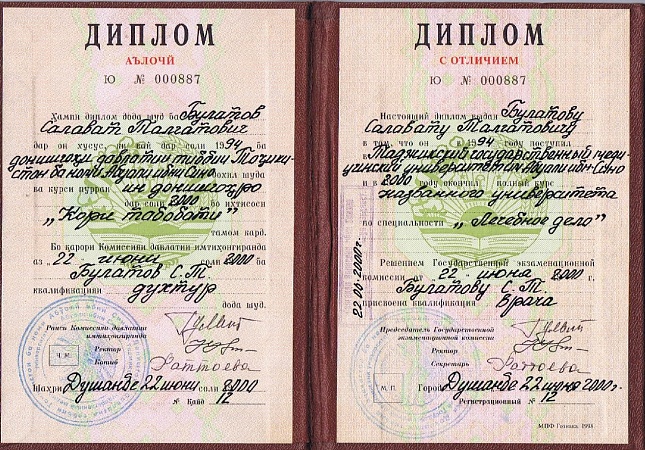 ДИПЛОМ
АЪЛОЧӢ
Ю № 000887
Ҳамин диплом дода шуд ба Булатов
Салават Талгатович
дар он хусус, ки вай дар соли 1994 ба
донишгоҳи давлатии тиббии Тоҷики-
стон ба номи Абӯали ибни Сино дохил шуда
ва курси пурраи ин донишгоҳро
дар соли 2000 бо ихтисоси
„Кори табобати"
тамом кард.
Бо қарори Комиссияи давлатии имтиҳонгиранда
аз „22" июни соли 2000 ба
Булатов С.Т.
квалификацияи духтур
дода шуд.
Раиси Комиссияи давлатии
имтиҳонгиранда
Ректор
Котиб Раттоева
Ҷ. М.
Шаҳри Душанбе 22 июни соли 2000
№ Қайд 12
ДИПЛОМ
С ОТЛИЧИЕМ
Ю № 000887
Настоящий диплом выдан Булатову
Салавату Талгатовичу
в том, что он в 1994 году поступил
в Таджикский государственный меди-
цинский университет им. Абуали ибн-Сино
и в 2000 году окончил полный курс
названного университета
по специальности „Лечебное дело"
Решением Государственной экзаменационной
комиссии 22 июня 2000 г.
Булатову С.Т.
присвоена квалификация врача
Председатель Государственной
экзаменационной комиссии
Ректор
Секретарь Раттоева
М. П.
Город Душанбе 22 июня 2000 г.
Регистрационный № 12
МПФ Гознака. 1993
22.06.2000г.